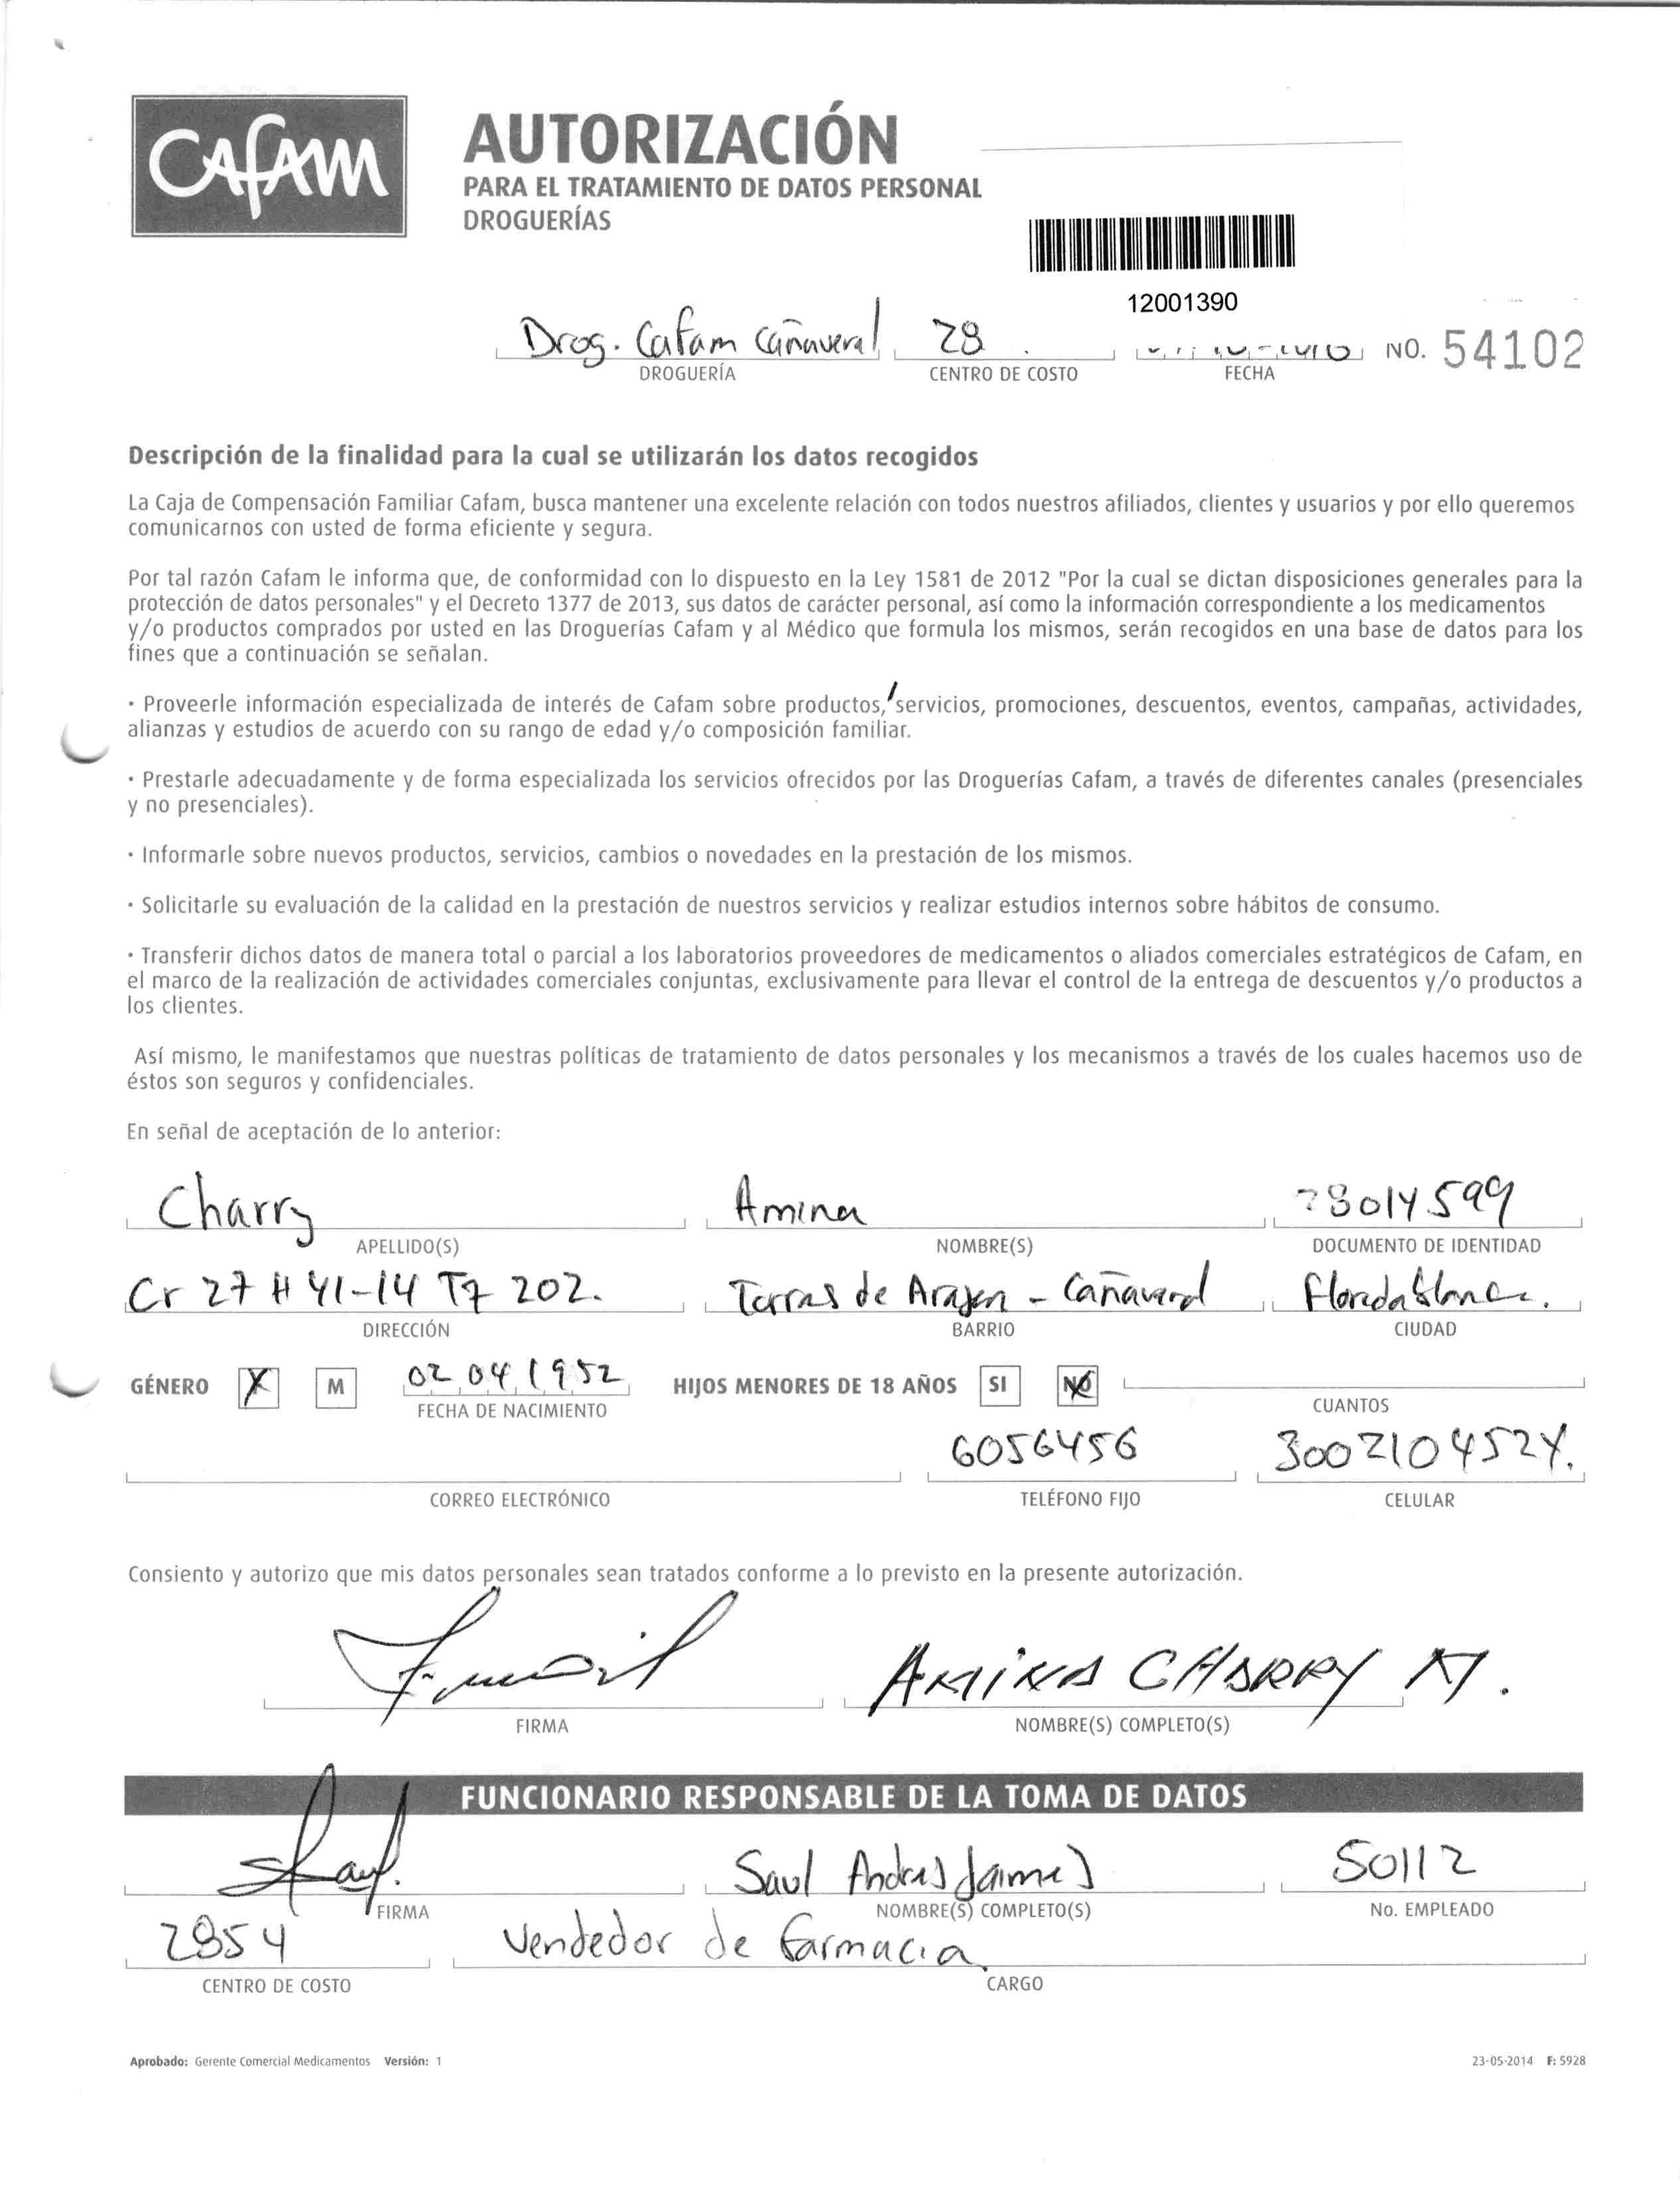 Cafam
AUTORIZACIÓN
PARA EL TRATAMIENTO DE DATOS PERSONAL
DROGUERÍAS
12001390
Drog. Cafam Cañaveral 28
NO. 54102
DROGUERÍA CENTRO DE COSTO FECHA
Descripción de la finalidad para la cual se utilizarán los datos recogidos
La Caja de Compensación Familiar Cafam, busca mantener una excelente relación con todos nuestros afiliados, clientes y usuarios y por ello queremos
comunicarnos con usted de forma eficiente y segura.
Por tal razón Cafam le informa que, de conformidad con lo dispuesto en la Ley 1581 de 2012 "Por la cual se dictan disposiciones generales para la
protección de datos personales" y el Decreto 1377 de 2013, sus datos de carácter personal, así como la información correspondiente a los medicamentos
y/o productos comprados por usted en las Droguerías Cafam y al Médico que formula los mismos, serán recogidos en una base de datos para los
fines que a continuación se señalan.
· Proveerle información especializada de interés de Cafam sobre productos, servicios, promociones, descuentos, eventos, campañas, actividades,
alianzas y estudios de acuerdo con su rango de edad y/o composición familiar.
· Prestarle adecuadamente y de forma especializada los servicios ofrecidos por las Droguerías Cafam, a través de diferentes canales (presenciales
y no presenciales).
· Informarle sobre nuevos productos, servicios, cambios o novedades en la prestación de los mismos.
· Solicitarle su evaluación de la calidad en la prestación de nuestros servicios y realizar estudios internos sobre hábitos de consumo.
· Transferir dichos datos de manera total o parcial a los laboratorios proveedores de medicamentos o aliados comerciales estratégicos de Cafam, en
el marco de la realización de actividades comerciales conjuntas, exclusivamente para llevar el control de la entrega de descuentos y/o productos a
los clientes.
Así mismo, le manifestamos que nuestras políticas de tratamiento de datos personales y los mecanismos a través de los cuales hacemos uso de
éstos son seguros y confidenciales.
En señal de aceptación de lo anterior:
Charry Amina
APELLIDO(S) NOMBRE(S) DOCUMENTO DE IDENTIDAD
Cr 27 # 41-14 T7 202. Torras de Aragon - Cañaveral Floridablanca.
DIRECCIÓN BARRIO CIUDAD
GÉNERO X M 02 04 1952 HIJOS MENORES DE 18 AÑOS SI NO
FECHA DE NACIMIENTO CUANTOS
6056456 3002104524.
CORREO ELECTRÓNICO TELÉFONO FIJO CELULAR
Consiento y autorizo que mis datos personales sean tratados conforme a lo previsto en la presente autorización.
AMINA CHARRY M.
FIRMA NOMBRE(S) COMPLETO(S)
FUNCIONARIO RESPONSABLE DE LA TOMA DE DATOS
Saul Andres Jaimes 50112
FIRMA NOMBRE(S) COMPLETO(S) No. EMPLEADO
2854 Vendedor de farmacia
CENTRO DE COSTO CARGO
Aprobado: Gerente Comercial Medicamentos Versión: 1 23-05-2014 F: 5928